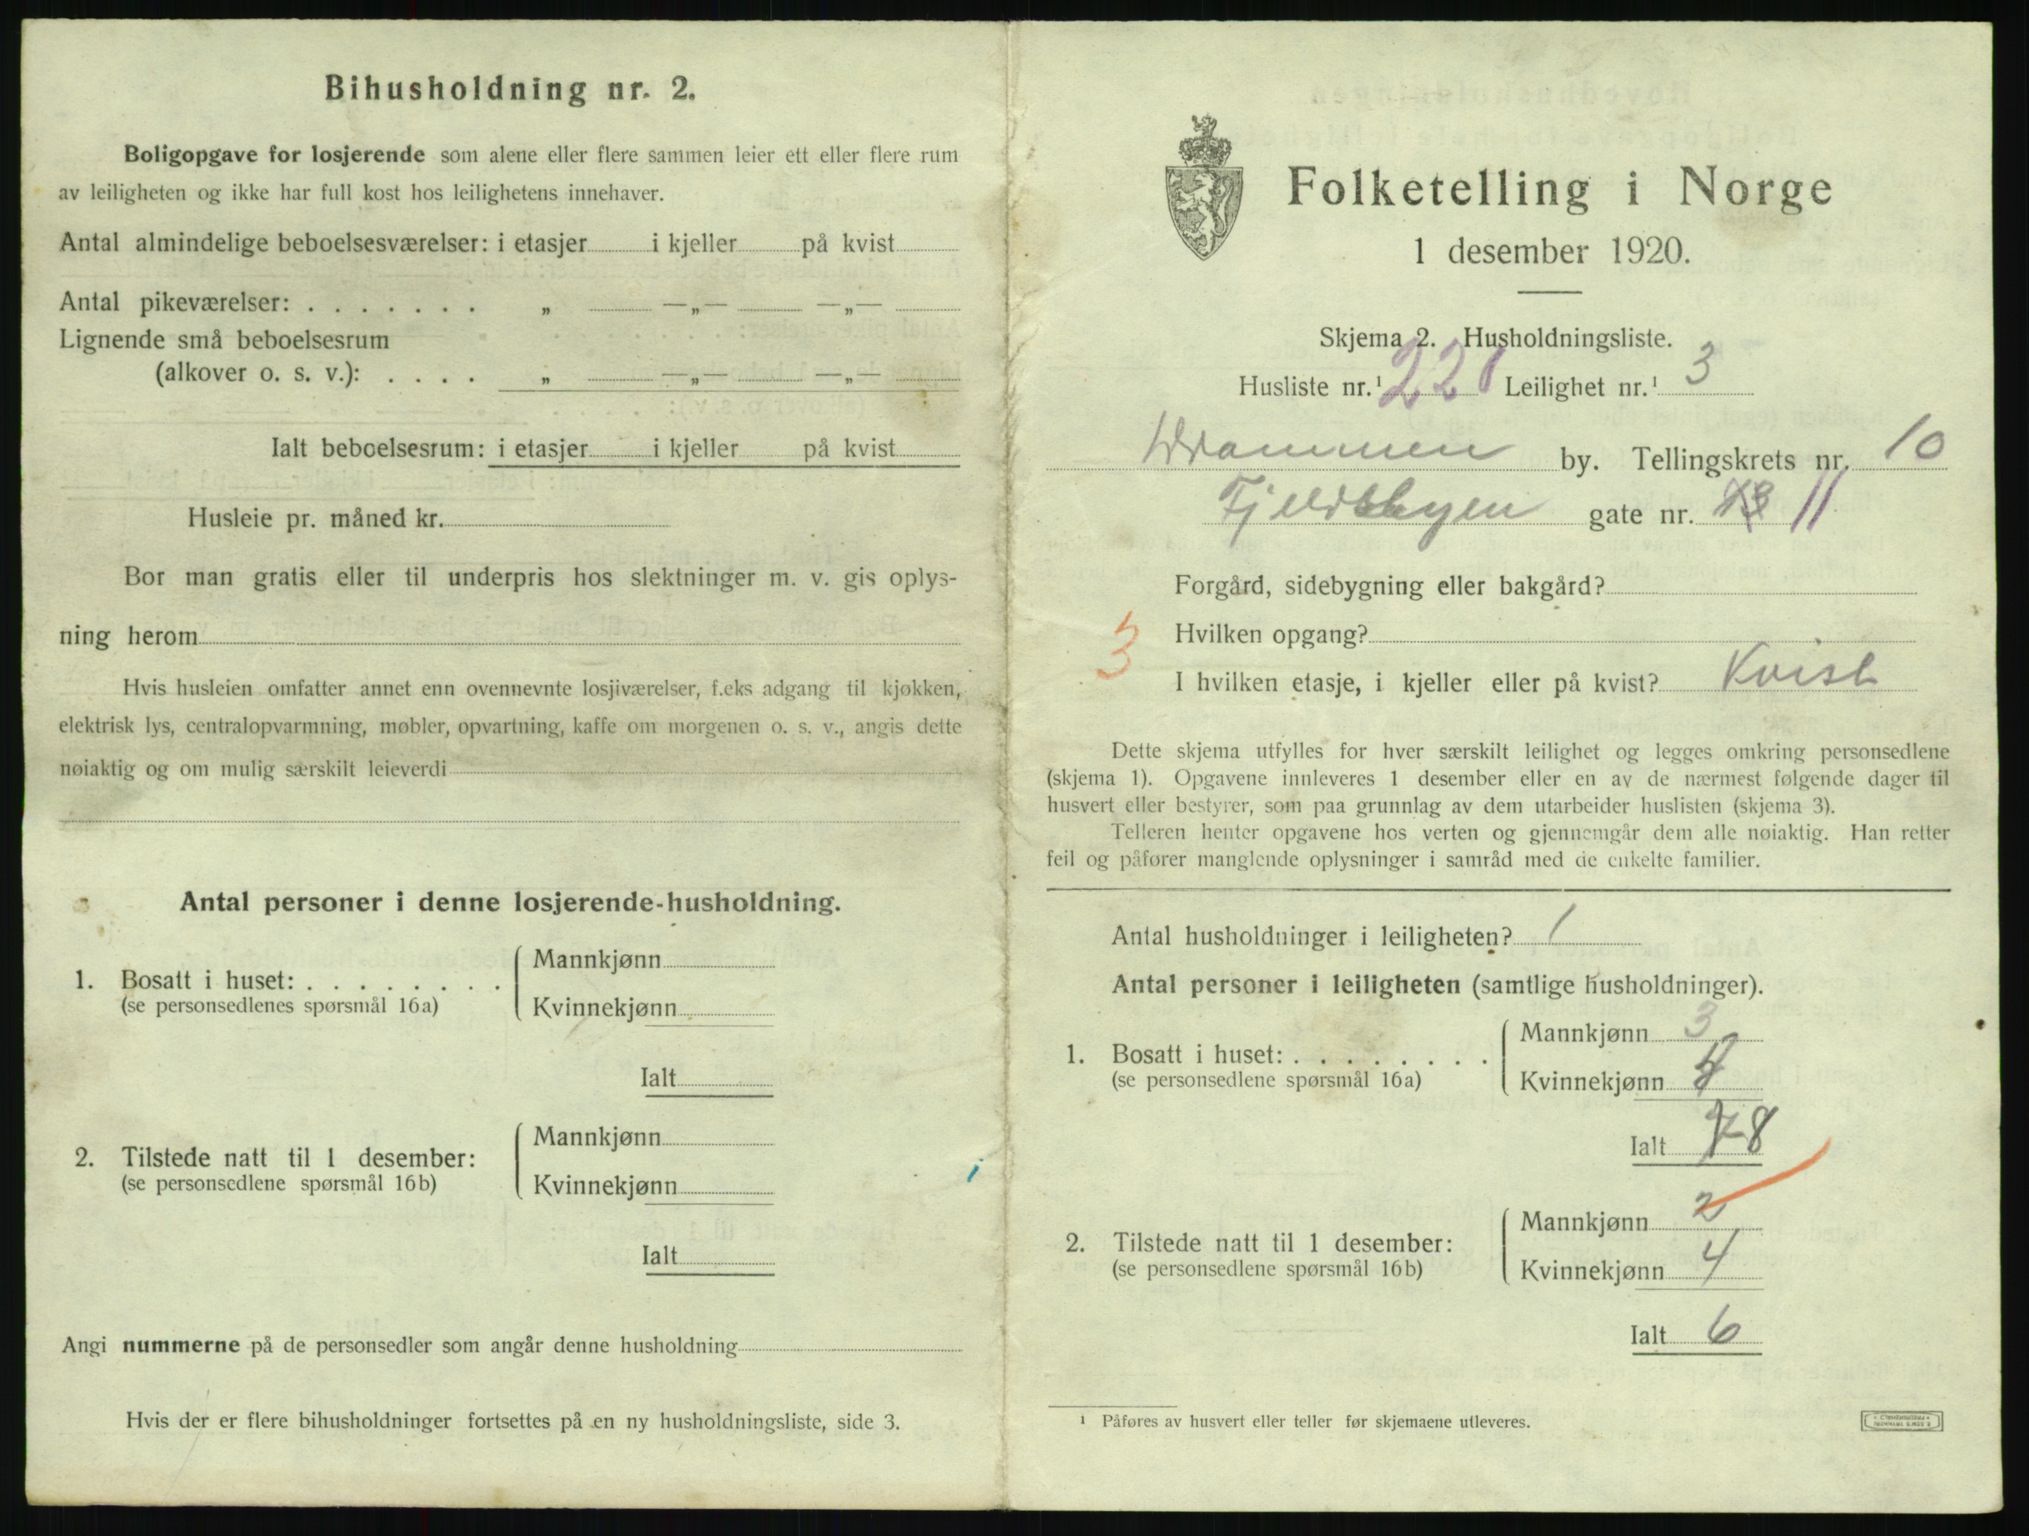 Bihusholdning nr. 2.
Boligopgave for losjerende som alene eller flere sammen leier ett eller flere rum
av leiligheten og ikke har full kost hos leilighetens innehaver.
Antal almindelige beboelsesværelser: i etasjer i kjeller på kvist
Antal pikeværelser: . . . . . . . „ —„— —„—
Lignende små beboelsesrum
(alkover o. s. v.): . . . . „ —„— —„—
Ialt beboelsesrum: i etasjer i kjeller på kvist
Husleie pr. måned kr.
Bor man gratis eller til underpris hos slektninger m. v. gis oplys-
ning herom
Hvis husleien omfatter annet enn ovennevnte losjiværelser, f.eks adgang til kjøkken,
elektrisk lys, centralopvarmning, møbler, opvartning, kaffe om morgenen o. s. v., angis dette
nøiaktig og om mulig særskilt leieverdi
Antal personer i denne losjerende-husholdning.
1. Bosatt i huset: . . . . . . . .
(se personsedlenes spørsmål 16a)
Mannkjønn
Kvinnekjønn
Ialt
2. Tilstede natt til 1 desember:
(se personsedlene spørsmål 16b)
Mannkjønn
Kvinnekjønn
Ialt
Angi nummerne på de personsedler som angår denne husholdning
Hvis der er flere bihusholdninger fortsettes på en ny husholdningsliste, side 3.
Folketelling i Norge
1 desember 1920.
Skjema 2. Husholdningsliste.
Husliste nr.¹ 221 Leilighet nr.¹ 3
Drammen by. Tellingskrets nr. 10
Fjeldbyen gate nr. 13 11
Forgård, sidebygning eller bakgård?
3 Hvilken opgang?
I hvilken etasje, i kjeller eller på kvist? Kvist
Dette skjema utfylles for hver særskilt leilighet og legges omkring personsedlene
(skjema 1). Opgavene innleveres 1 desember eller en av de nærmest følgende dager til
husvert eller bestyrer, som paa grunnlag av dem utarbeider huslisten (skjema 3).
Telleren henter opgavene hos verten og gjennemgår dem alle nøiaktig. Han retter
feil og påfører manglende oplysninger i samråd med de enkelte familier.
Antal husholdninger i leiligheten? 1
Antal personer i leiligheten (samtlige husholdninger).
1. Bosatt i huset: . . . . . . . .
(se personsedlene spørsmål 16a)
Mannkjønn 3
Kvinnekjønn
Ialt 7 8
2. Tilstede natt til 1 desember:
(se personsedlene spørsmål 16b)
Mannkjønn 2
Kvinnekjønn 4
Ialt 6
¹ Påføres av husvert eller teller før skjemaene utleveres.